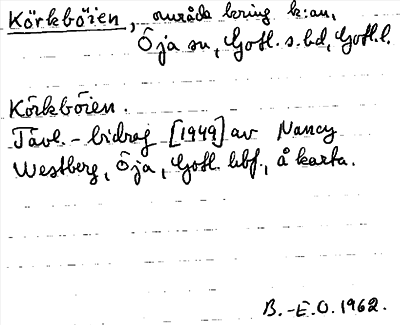 Körkbòien, område kring k:an,
Öja sn, Gotl. s. hd, Gotl. l.
Körkbòien.
Tävl.-bidrag [1949] av Nancy
Westberg, Öja, Gotl. hbf., å karta.
B.-E.O. 1962.